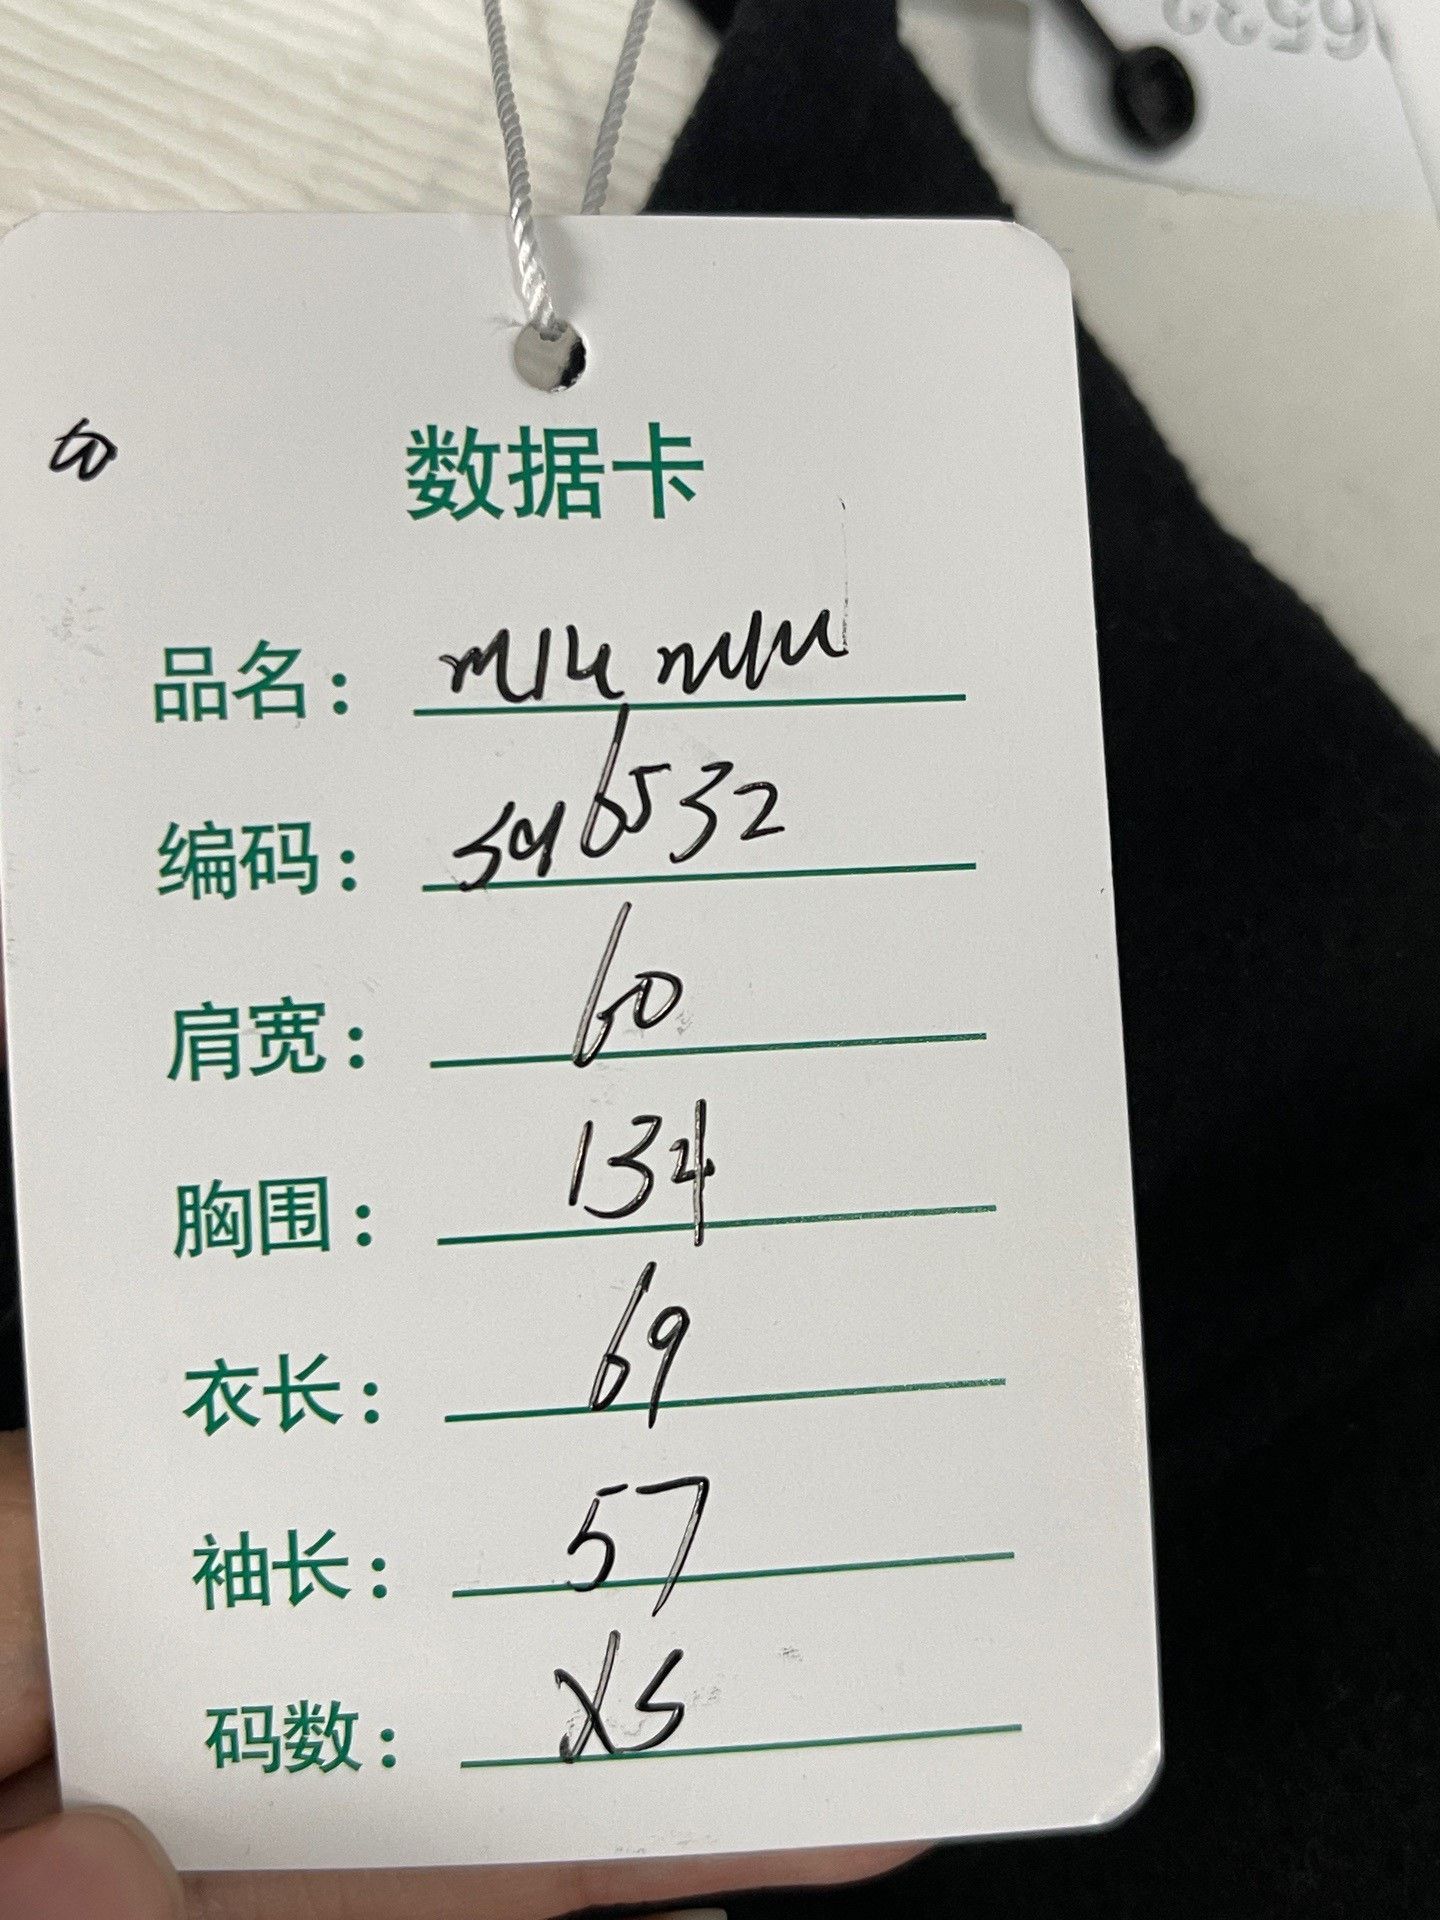 6532
数据卡
品名： miu miu
编码： 546532
肩宽： 60
胸围： 134
衣长： 69
袖长： 57
码数： XS